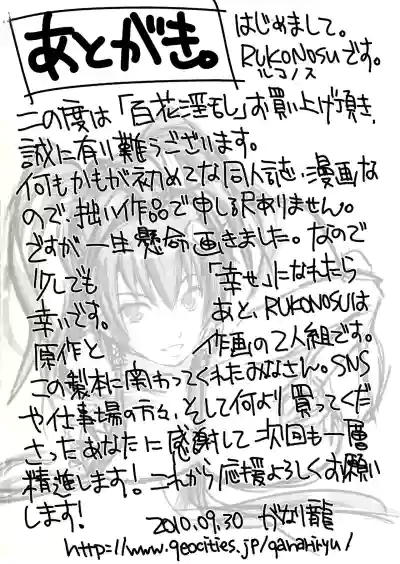 あとがき。
はじめまして。
RUKONOSUです。
ルコノス
この度は「百花淫乱」お買い上げ頂き、
誠に有り難うございます。
何もかもが初めてな同人誌、漫画な
ので、拙い作品で申し訳ありません。
ですが一生懸命画きました。なので
少しでも「幸せ」になれたら
幸いです。あと、RUKONOSUは
原作と作画の2人組です。
この製本に関わってくれたみなさん。SNS
や仕事場の方々、そして何より買ってくだ
さったあなたに感謝して次回も一層
精進します！これから応援よろしくお願い
します！
2010.09.30 がなり龍
http://www.geocities.jp/ganariryu/